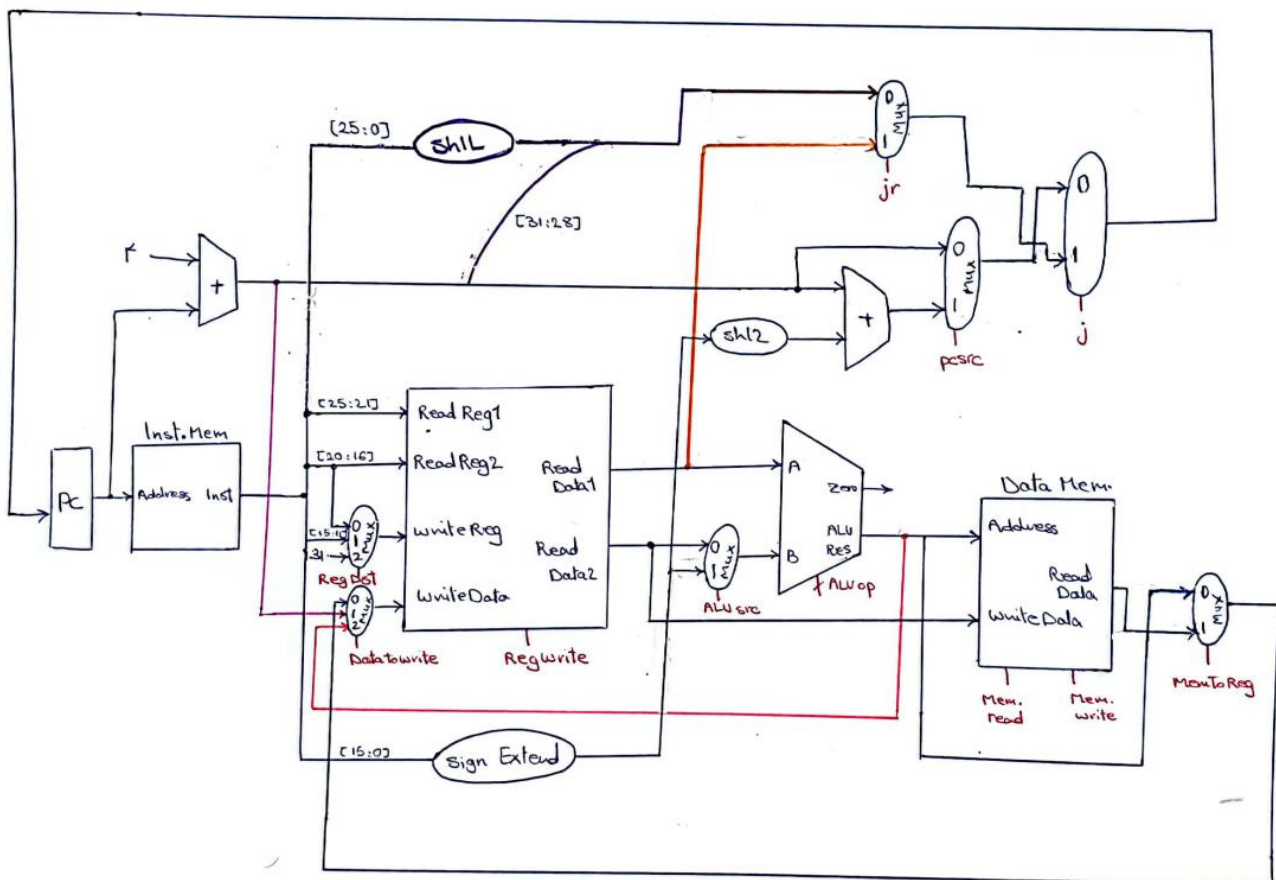 [25:0]
sh1L
0
1
Mux
jr
[31:28]
۴
+
0
1
Mux
pcsrc
0
1
j
sh12
+
PC
Inst.Mem
Address Inst
[25:21]
[20:16]
31
0
1
2
Mux
Reg Dst
0
1
2
Mux
Datatowrite
Read Reg1
Read Reg2
Write Reg
Write Data
Read
Data1
Read
Data2
Regwrite
0
1
Mux
ALUsrc
A
B
Zero
ALU
RES
ALUop
Data Mem.
Address
Read
Data
Write Data
Mem.
read
Mem.
write
0
1
Mux
MemToReg
[15:0]
Sign Extend